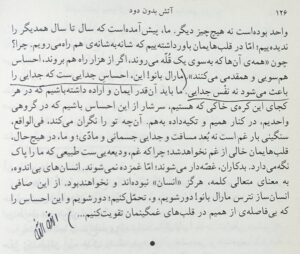 آتش بدون دود
۱۲۶
واحد بوده‌است نه هیچ‌چیز دیگر. ما، پیش آمده‌است که سال تا سال همدیگر را
ندیده‌ییم؛ امّا در قلب‌هایمان باورداشته‌ییم که شانه‌به‌شانه‌ی هم راه‌می‌رویم. چرا؟
چون «همه‌ی آن‌ها که به‌سوی یک قلّه می‌روند، اگر از هزار راه هم بروند، احساسِ
هم‌سویی و همقدمی می‌کنند» مارال بانو! این، احساس جدایی‌ست که جدایی را
باعث می‌شود نه نَفْسِ جدایی. ما باید آن‌قدر ایمان و اراده داشته‌باشیم که در هر
کجای این کره‌ی خاکی که هستیم، سرشار از این احساس باشیم که در گروهی
واحدیم، در کنار همیم و تکیه‌داده به‌هم. آن‌چه تو را نگران می‌کند، فی‌الواقع،
سنگینی بارِ غم است نه بُعد مسافت و جدایی جسمانی و مادّی؛ و ما، در هیچ‌حال،
قلب‌هایمان خالی از غم نخواهدشد؛ چراکه غم، ودیعه‌یی‌ست طبیعی که ما را پاک
نگه‌می‌دارد. بدکاران، غصّه‌دار می‌شوند؛ امّا غمزده نمی‌شوند. انسان‌های بی‌اندوه،
به معنای متعالی کلمه، هرگز «انسان» نبوده‌اند و نخواهندبود. از این صافیِ
انسان‌ساز نترس مارال بانو! دورشویم و، تحمّل‌کنیم؛ دورشویم و این احساس را
که بی‌فاصله‌ی از همیم در قلب‌های غمگینمان تقویت‌کنیم...